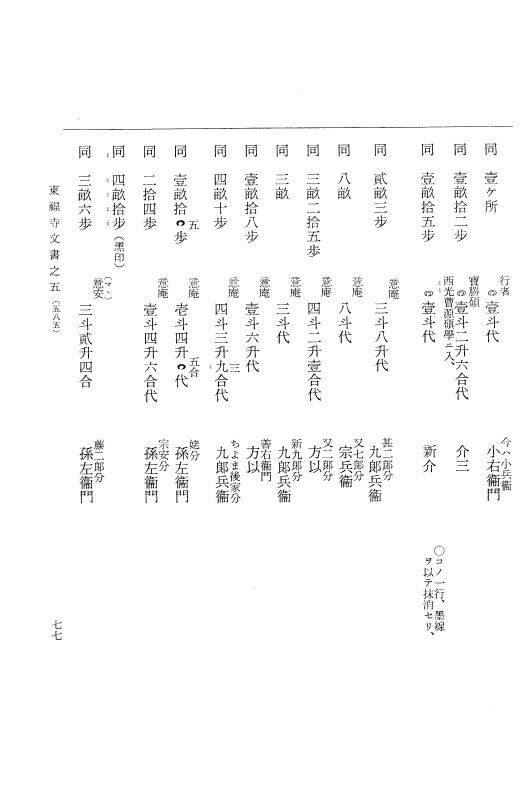 今ハ小兵衞
行者
同 壹ケ所 壹斗代 小右衞門
寶勝碩
同 壹畝拾二步 壹斗二升六合代 介三
西光曹源碩學ニ入、
同 壹畝拾五步 壹斗代 新介
○コノ一行、墨線
ヲ以テ抹消セリ、
意庵 甚二郞分
同 貳畝三步 三斗八升代 九郞兵衞
又七郞分
同 八畝 八斗代 宗兵衞
意庵 又二郞分
同 三畝二拾五步 四斗二升壹合代 方以
意庵 新九郞分
同 三畝 三斗代 九郞兵衞
意庵 善右衞門
同 壹畝拾八步 壹斗六升代 方以
意庵 三 ちよま後家分
同 四畝十步 四斗三升九合代 九郞兵衞
五 意庵 五合 姥分
同 壹畝拾步 壱斗四升代 孫左衞門
意庵 宗安分
同 二拾四步 壹斗四升六合代 孫左衞門
同 四畝拾步(黑印)
(マヽ)
意安 藤二郞分
同 三畝六步 三斗貳升四合 孫左衞門
東福寺文書之五(五八五) 七七